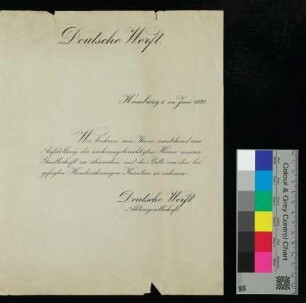 Deutsche Werft.
Hamburg 1, im Juni 1920
Wir beehren uns Ihnen umstehend eine
Aufstellung der zeichnungsberechtigten Herren unserer
Gesellschaft zu übersenden mit der Bitte, von den bei-
gefügten Handzeichnungen Kenntnis zu nehmen.
Deutsche Werft
Aktiengesellschaft
Colour & Grey Control Chart